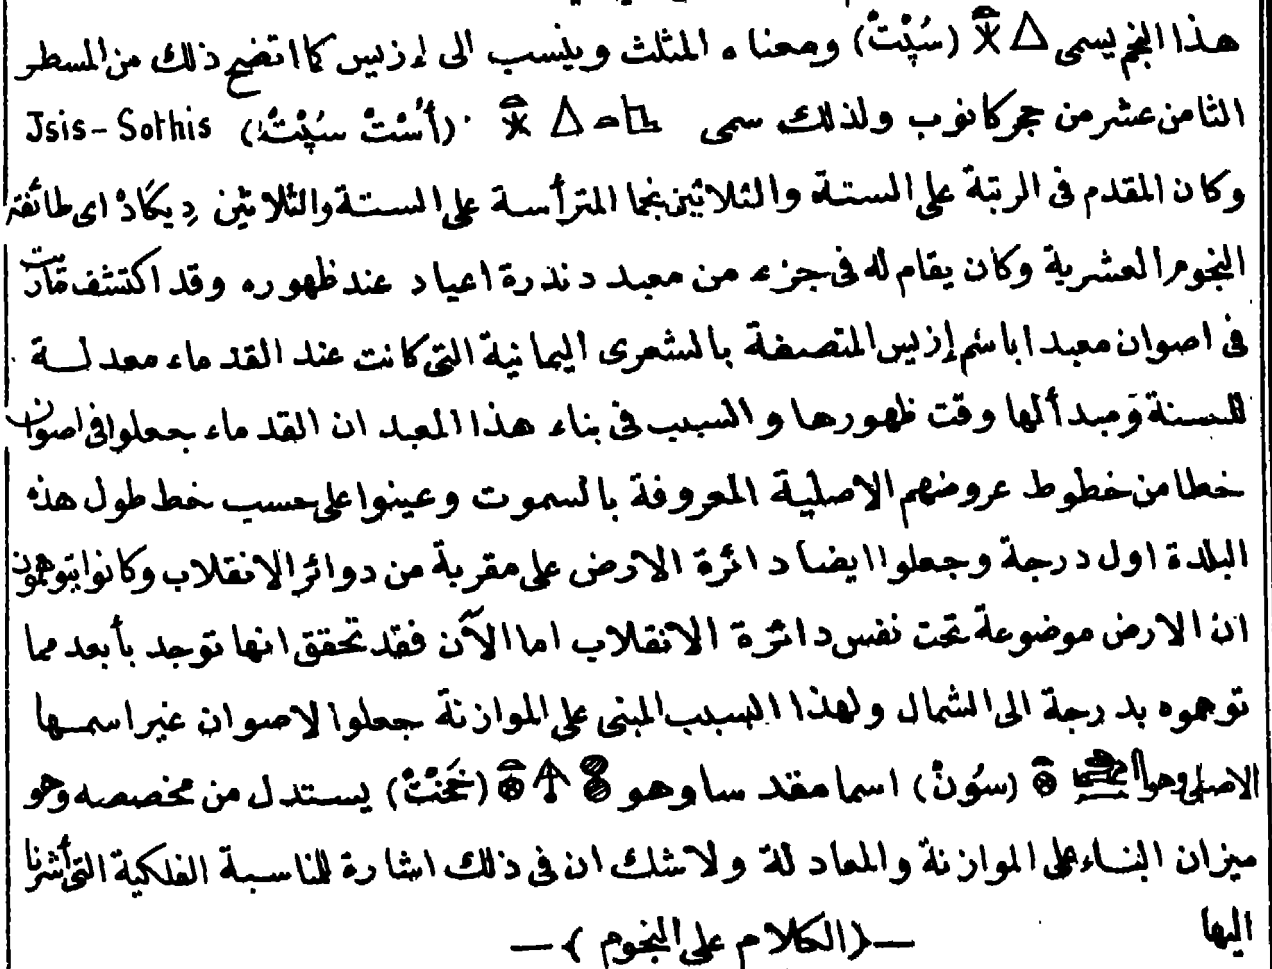 هذا النجم يسمى (سُپْتْ) ومعناه المثلث وينسب الى إزيس كما اتضح ذلك من السطر
الثامن عشر من حجر كانوب ولذلك سمى (أُسْتْ سُپْتْ) Jsis-Sothis
وكان المقدم فى الرتبة على الستة والثلاثين نجما المترأسة على الستة والثلاثين دِيكَادْ اى طائفة
النجوم العشرية وكان يقام له فى جزء من معبد دندرة اعياد عند ظهوره وقد اكتشف
فى اصوان معبدا باسم إزيس المتصفة بالشعرى اليمانية التى كانت عند القدماء معدلة
للسنة ومبدأ لها وقت ظهورها والسبب فى بناء هذا المعبد ان القدماء جعلوا فى اصوان
خطا من خطوط عروضهم الاصلية المعروفة بالسموت وعينوا على حسب خط طول هذه
البلدة اول درجة وجعلوا ايضا دائرة الارض على مقربة من دوائر الانقلاب وكانوا يتوهمون
ان الارض موضوعة تحت نفس دائرة الانقلاب اما الآن فقد تحقق انها توجد بأبعد مما
توهموه بدرجة الى الشمال ولهذا السبب المبنى على الموازنة جعلوا لاصوان غير اسمها
الاصلى وهو (سُونْ) اسما مقدسا وهو (خَنْتْ) يستدل من مخصصه وهو
ميزان البناء على الموازنة والمعادلة ولا شك ان فى ذلك اشارة للناسبة الفلكية التى أشرنا
اليها
—(الكلام على النجوم)—